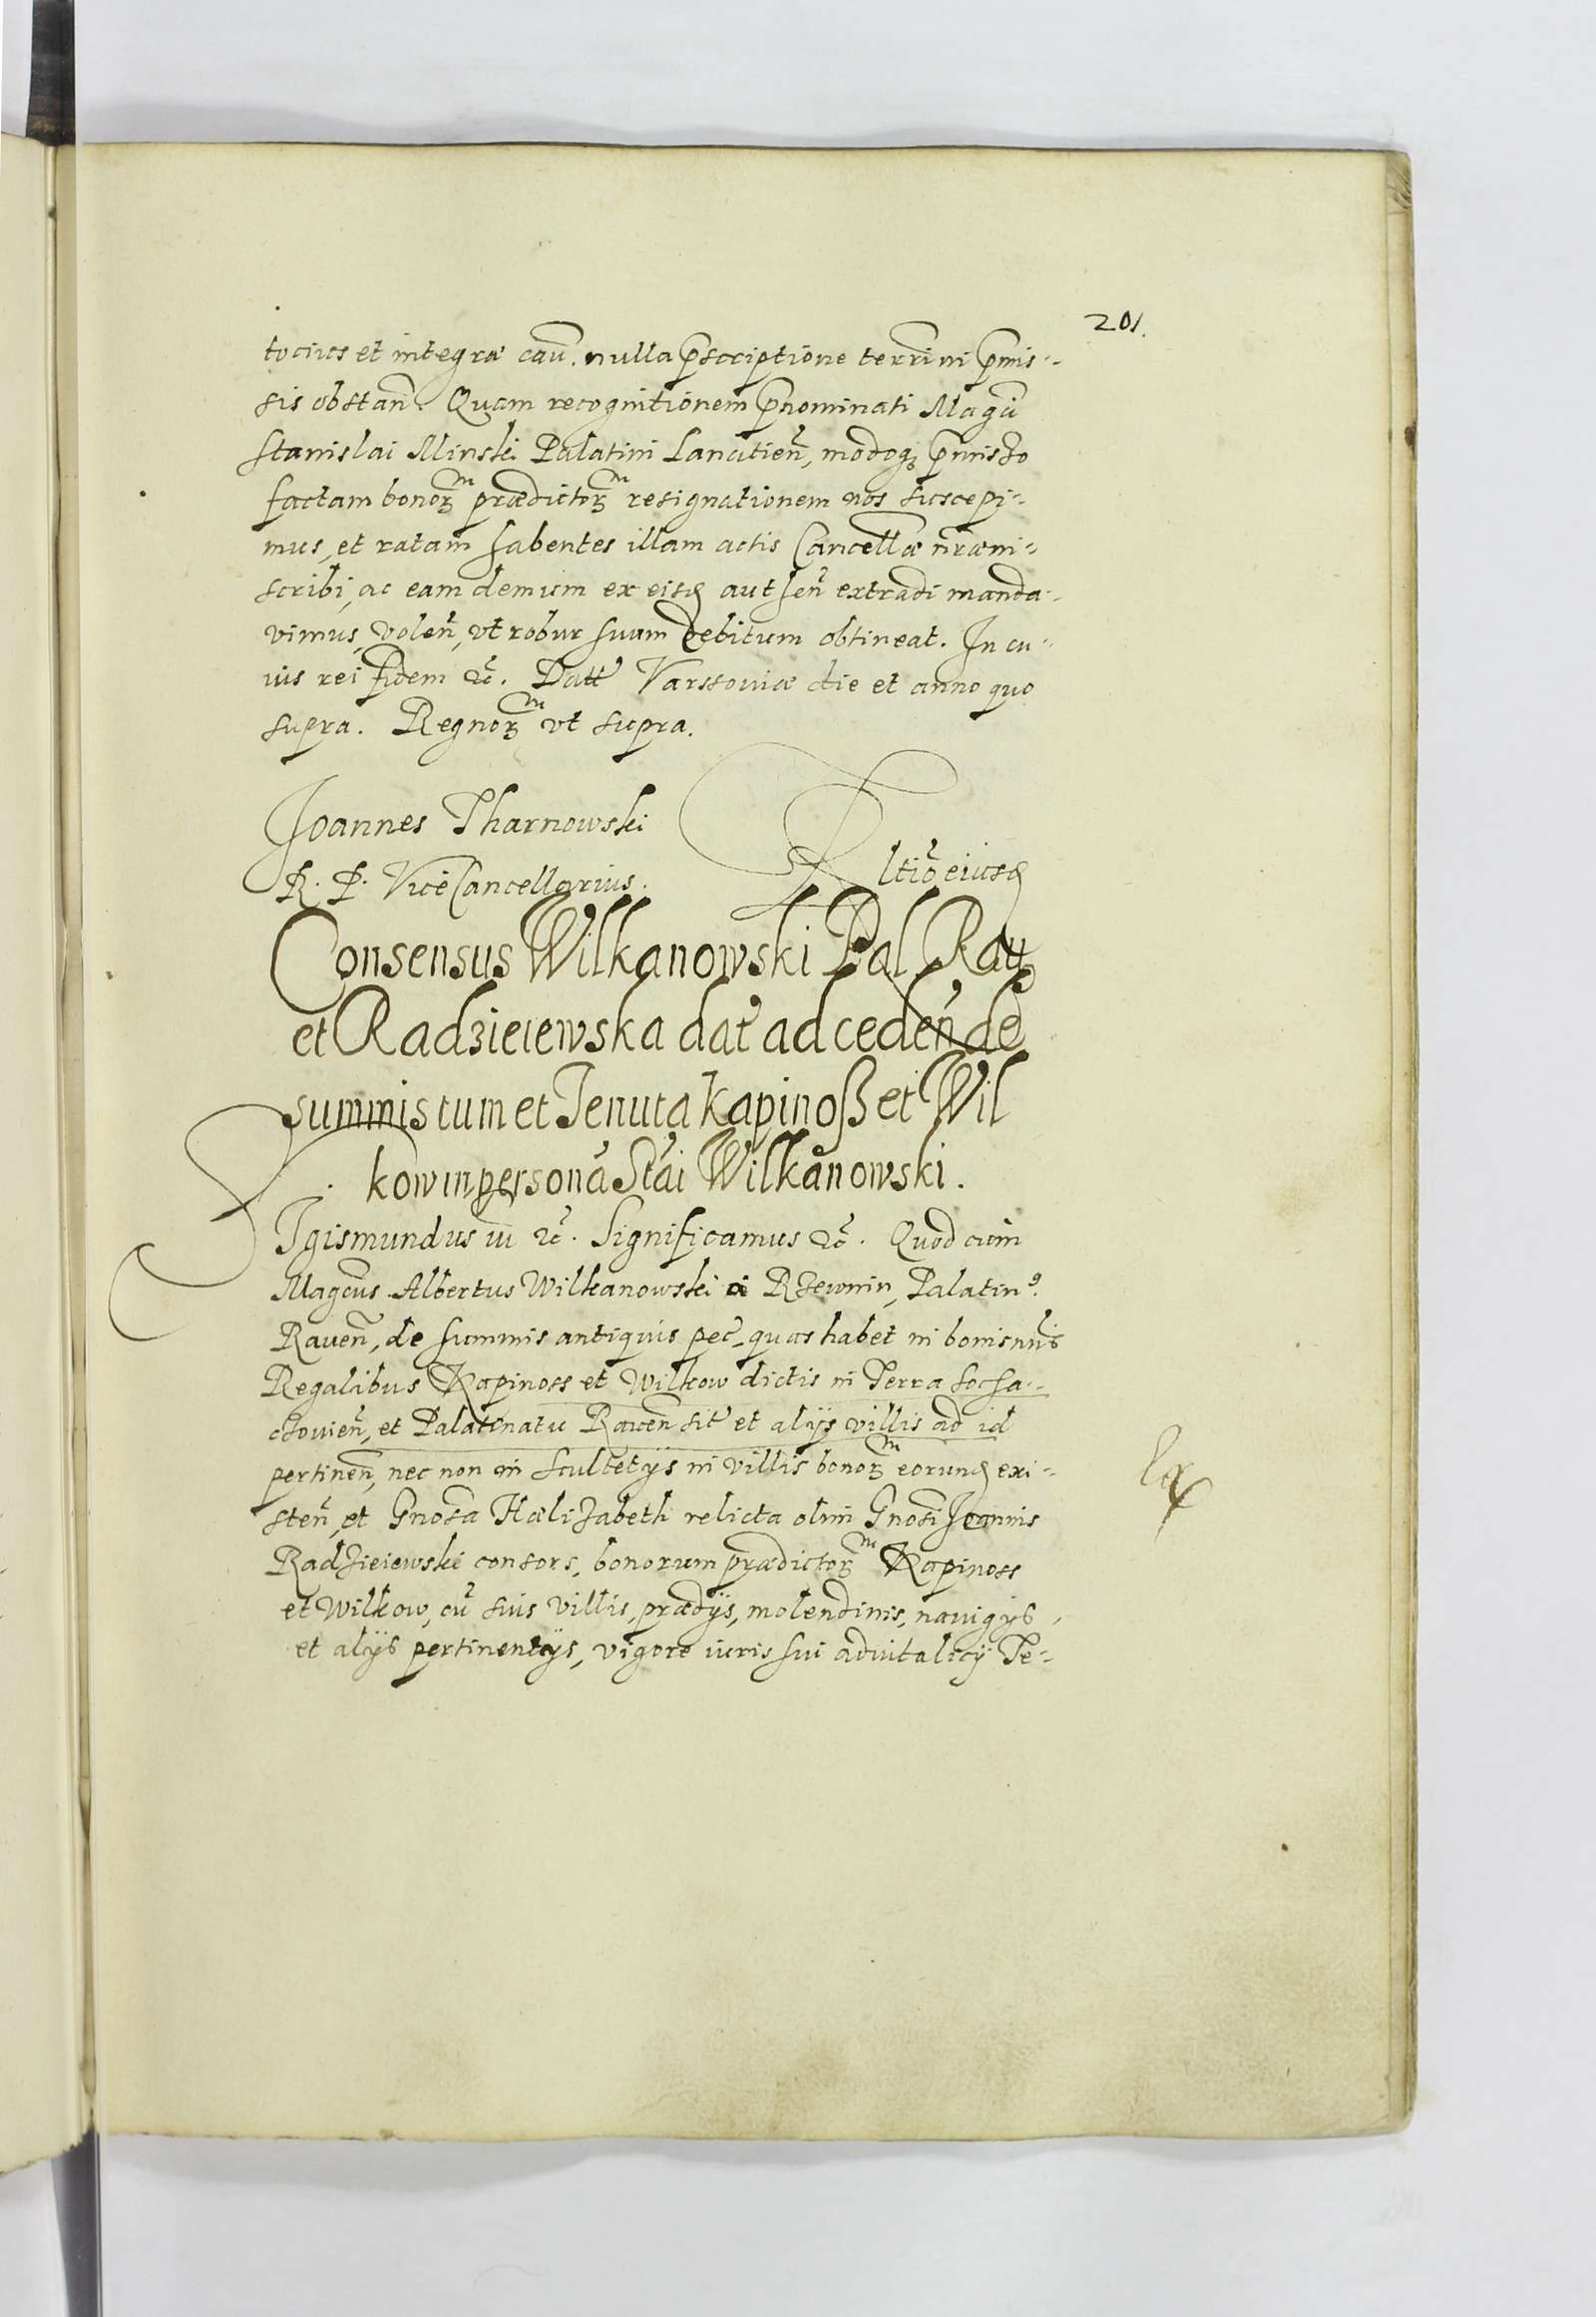 201.
tocius et integræ cau͂. nulla p̃scriptione terr͂ini p̃mis-
sis obstan͂. Quam recognitionem p̃nominati Magci͂
Stanislai Minski Palatini Lancitien͂, modoq; p̃misso
factam bonorᵐ prædictorᵐ resignationem nos suscepi-
mus, et ratam habentes illam actis Cancellæ n͂ræ in-
scribi, ac eam demum ex eisd authen͂ extradi manda-
vimus, volen͂, vt robur suum debitum obtineat. In cu-
ius rei fidem &c͂. Datt Varssoviæ die et anno quo
supra. Regnorᵐ vt supra.
Joannes Tharnowski
R. P. ViceCancellarius.
R ltio͂ eiusd
Consensus Wilkanowski Pal Rau
et Radzieiewska dat ad ceden͂ de
summis tum et Tenuta Kapinoß et Wil
kow in persona͂ Sta͂i Wilkanowski.
SIgismundus iii &c͂. Significamus &c͂. Quod cum
Magcus Albertus Wilkanowski a Rzewnin, Palatin9
Raven͂, de summis antiquis pec͂, quas habet in bonis n͂ris
Regalibus Kapinoss et Wilkow dictis in Terra Socha-
czouien͂, et Palatinatu Raven͂ sit͂ et alijs villis ad id
pertinen͂, nec non in scultetijs in villis bonorᵐ eorund exi-
sten͂, et Gnosa Hælizabeth relicta olim Gnosi Joannis
Radzieiewski consors, bonorum prædictorᵐ Kapinoss
et Wilkow, cu͂ suis villis, prædijs, molendinis, nauigijs,
et alijs pertinentijs, vigore iuris sui aduitalicij Te-